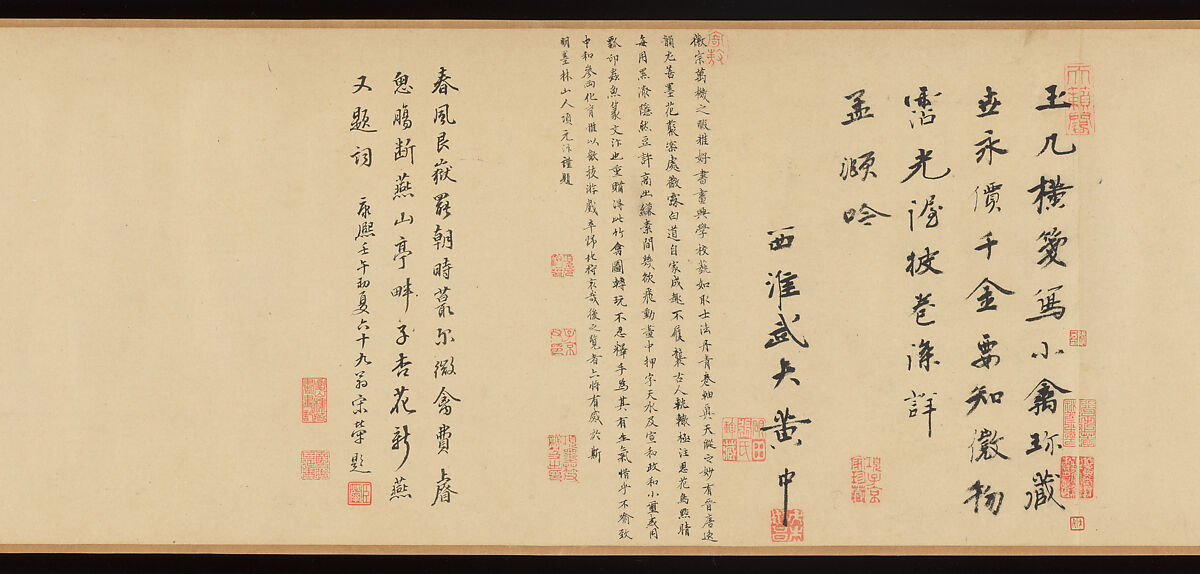 玉几橫箋寫小禽珍藏
世永價千金要知微物
霑光渥披卷深詳
孟頫吟
西淮武夫黃中
徽宗萬機之暇雅好書畫興學校藝如取士法丹青卷軸具天縱之妙有晉唐遺
韻尤善墨花叢密處微露白道自家成趣不履襲古人軌轍極注思花鳥點睛
每用黑漆隱然豆許高出縑素間幾欲飛動畫中押字天水及宣和政和小璽或用
瓢印蟲魚篆文汴也重購得此竹禽圖轉玩不忍釋手為其有生氣惜乎不喻致
中和參兩化育惟以技游戲卒歸北狩哀哉後之覽者亦將有感於斯
明墨林山人項元汴謹題
春風艮嶽罷朝時蕞爾微禽費睿
思腸斷燕山亭畔子杏花新燕
又題詞 康熙壬午初夏六十九翁宋犖題
項子京家珍藏